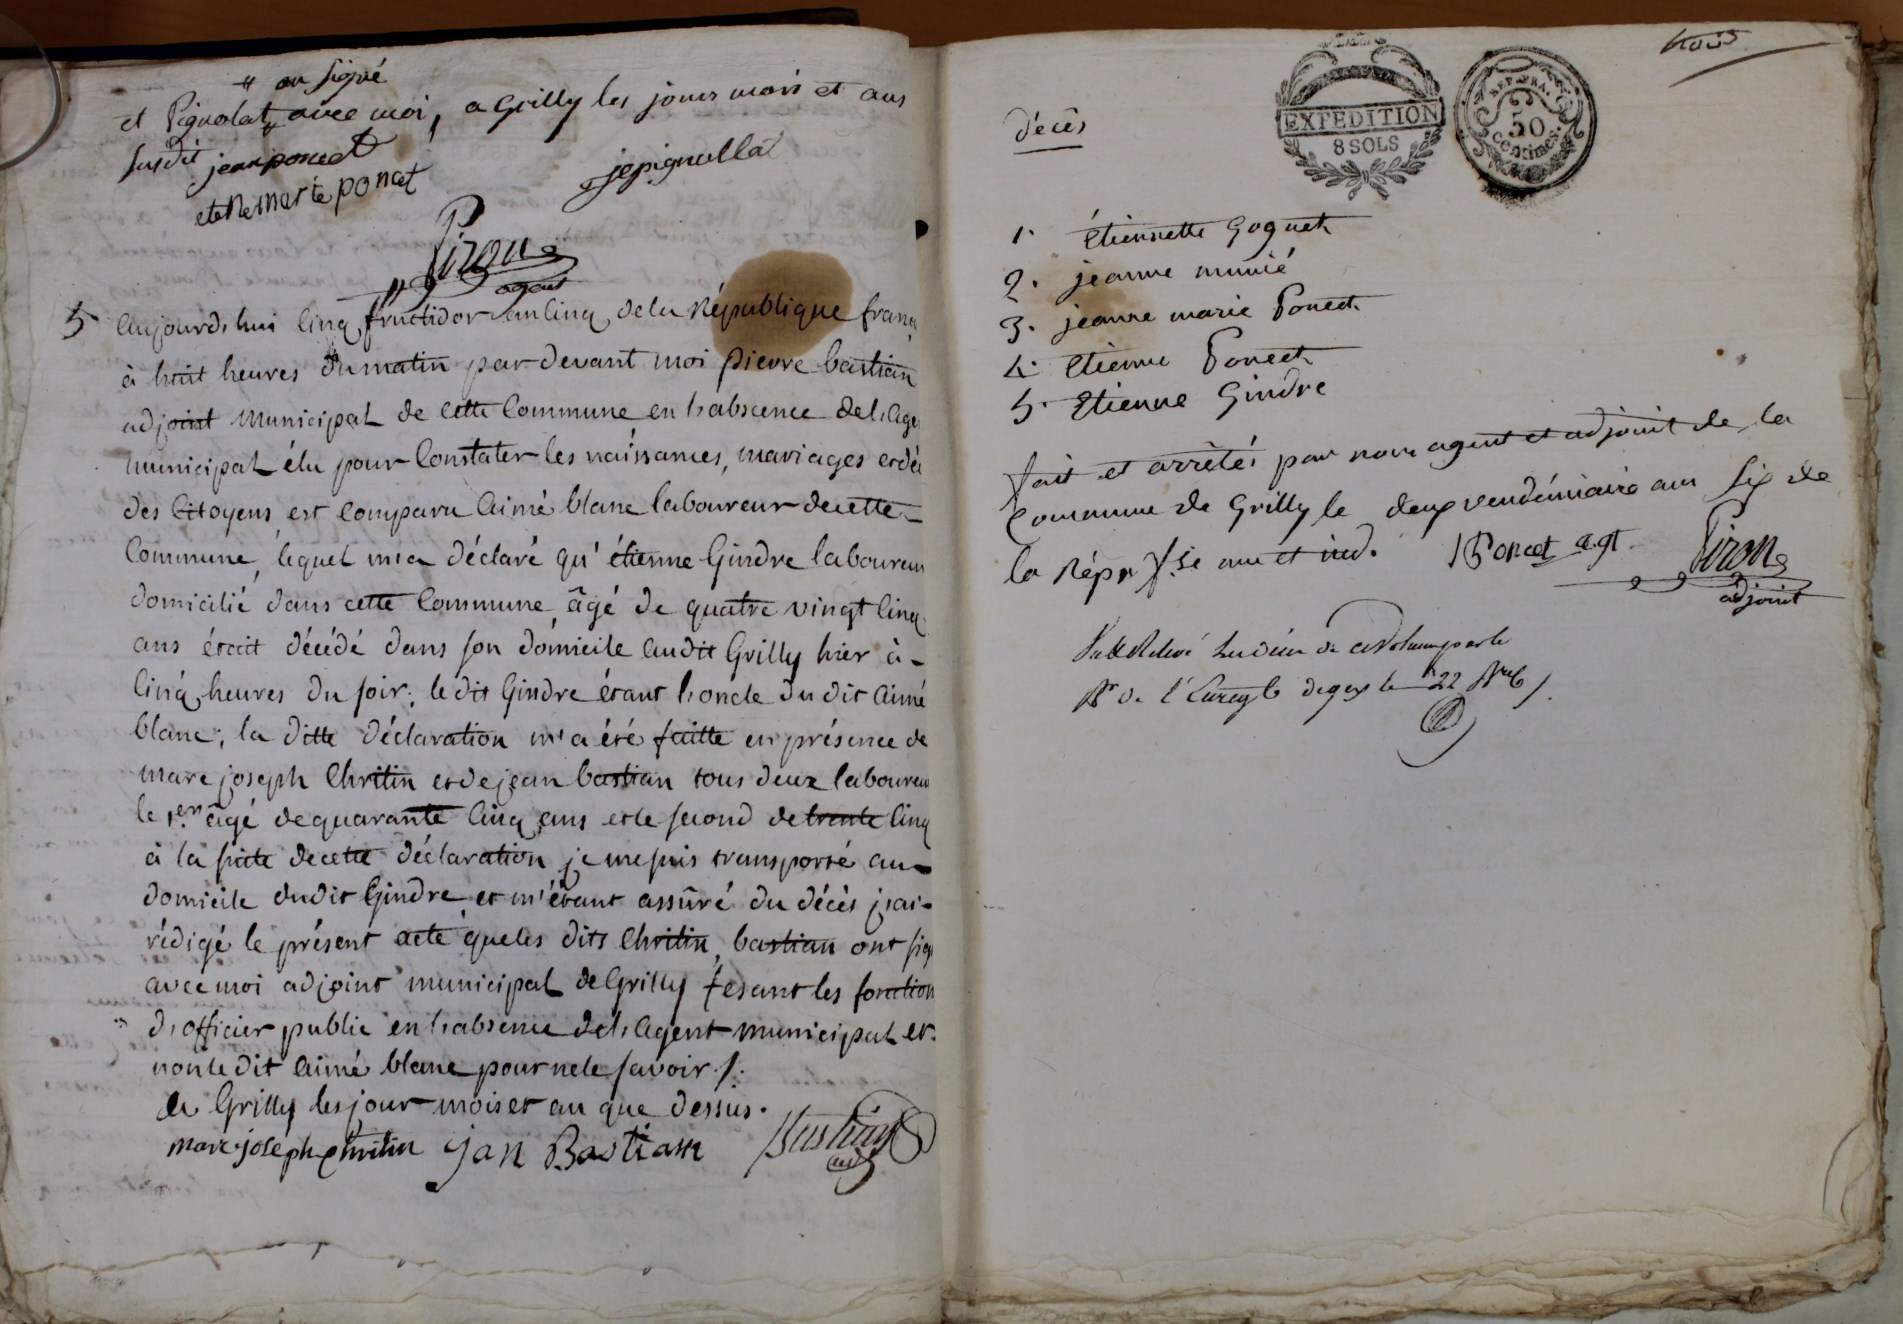 " on signé
et Pignolat " avec moi, a Grilly les jours mois et ans
susdit jean poncet
jepignulla
etiene marie poncet
Piron
agent
5 aujourd'hui cinq fructidor an cinq de la République franç
à huit heures du matin par devant moi pierre bastian
adjoint municipal de cette Commune en l'absence de l'age
municipal élu pour Constater les naissances, mariages et dé
des Citoyens est comparu Aimé blanc laboureur de cette
Commune, lequel m'a déclaré qu'étienne Gindre laboureur
domicilié dans cette Commune âgé de quatre vingt cinq
ans étoit décédé dans son domicile audit Grilly hier à
cinq heures du soir; le dit Gindre étant l'oncle du dit Aimé
blanc; la ditte déclaration m'a été faitte en présence de
marc joseph Chritin et de jean bastian tous deux laboureu
le 1er âgé de quarante cinq ans et le second de trente cinq
à la suite de cette déclaration je me suis transporté au
domicile dudit Gindre et m'étant assûré du décès j'ai
rédigé le présent acte que les dits Chritin, bastian ont sig
avec moi adjoint municipal de Grilly fesant les fonction
d'officier public en l'absence de l'agent municipal et
non le dit Aimé blanc pour ne le savoir ./.
à Grilly les jour mois et an que dessus.
marc joseph chritin jan Bastian Bastian
adj
trois
EXPEDITION
8 SOLS
REP. FRA.
50
Centimes.
décès
1. étiennette Goguet
2. jeanne munié
3. jeanne marie Poncet
4. étienne Poncet
5. Etienne Gindre
fait et arrêtés par nous agent et adjoint de la
Commune de Grilly le deux vendémiaire an six de
la Rép. f.se une et ind. Poncet agt Piron
adjoint
de l' de gex le 22